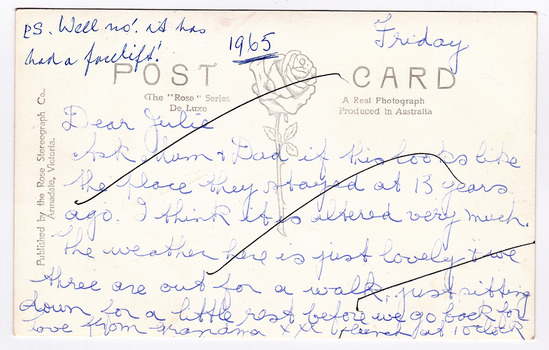 PS. Well no! it has
had a facelift!
1965
Friday
POST CARD
The "Rose" Series
De Luxe
A Real Photograph
Produced in Australia
Published by the Rose Stereograph Co.
Armadale, Victoria.
Dear Julie
Ask Mum & Dad if this looks like
the place they stayed at 13 years
ago. I think it is altered very much.
The weather here is just lovely & we
three are out for a walk, just sitting
down for a little rest before we go back for
love from Grandma xxx lunch at 1 o'clock